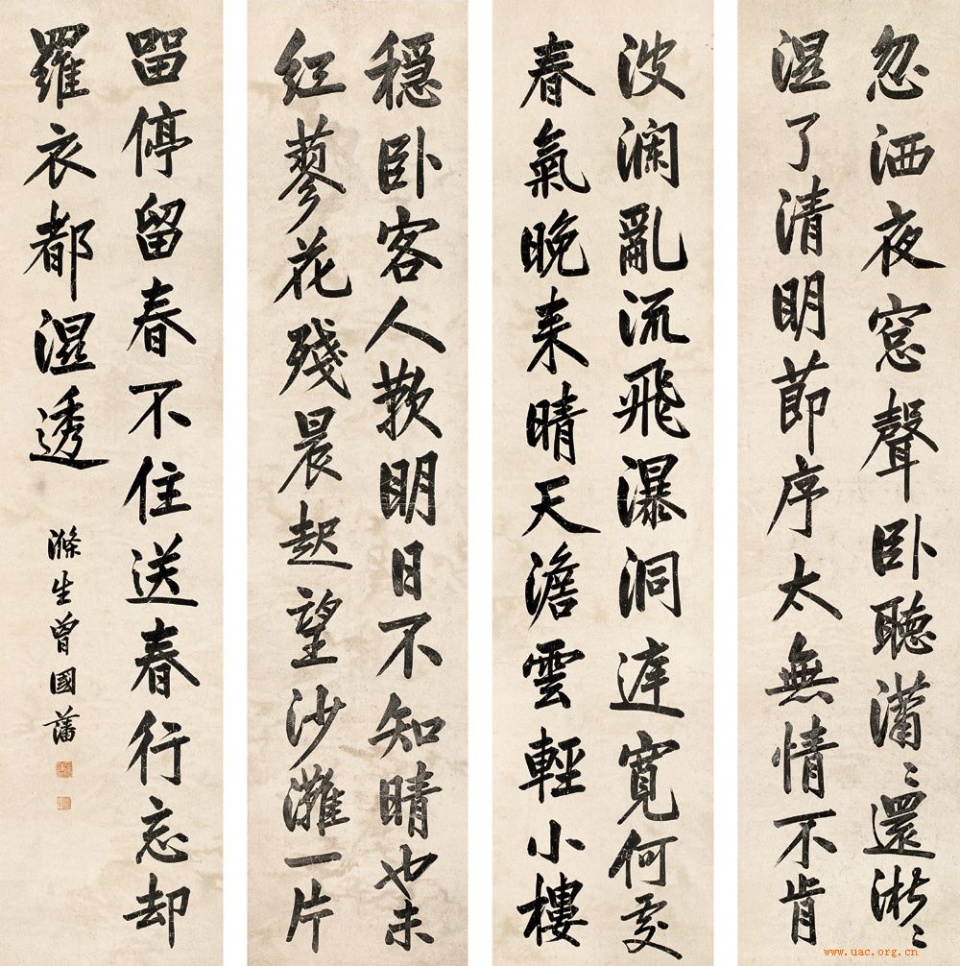 忽洒夜窓聲卧聽瀟〻還淅〻
湿了清明莭序太無情不肯
波澜亂流飛瀑洞庭寬何處
春氣晚来晴天澹雲輕小樓
穏卧客人歎明日不知晴也未
紅蓼花殘晨起望沙灘一片
畱停留春不住送春行忘却
羅衣都湿透
滌生曾國藩
www.uac.org.cn